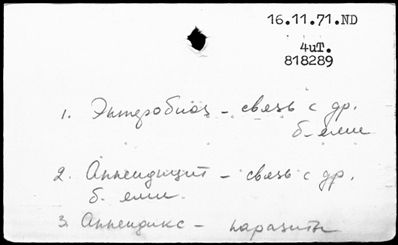 16.11.71.ND
4ит.
818289
1. Энтеробиоз – связь с др.
б-ями
2. Аппендицит – связь с др.
б. ями.
3. Аппендикс – паразиты